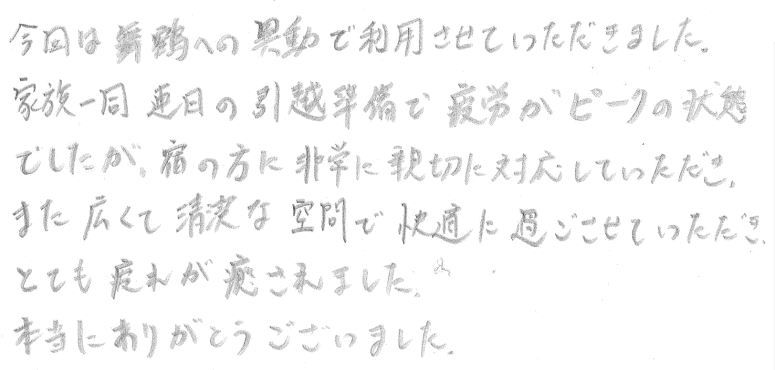 今回は舞鶴への異動で利用させていただきました。
家族一同連日の引越準備で疲労がピークの状態
でしたが、宿の方に非常に親切に対応していただき、
また広くて清潔な空間で快適に過ごさせていただき、
とても疲れが癒されました。
本当にありがとうございました。